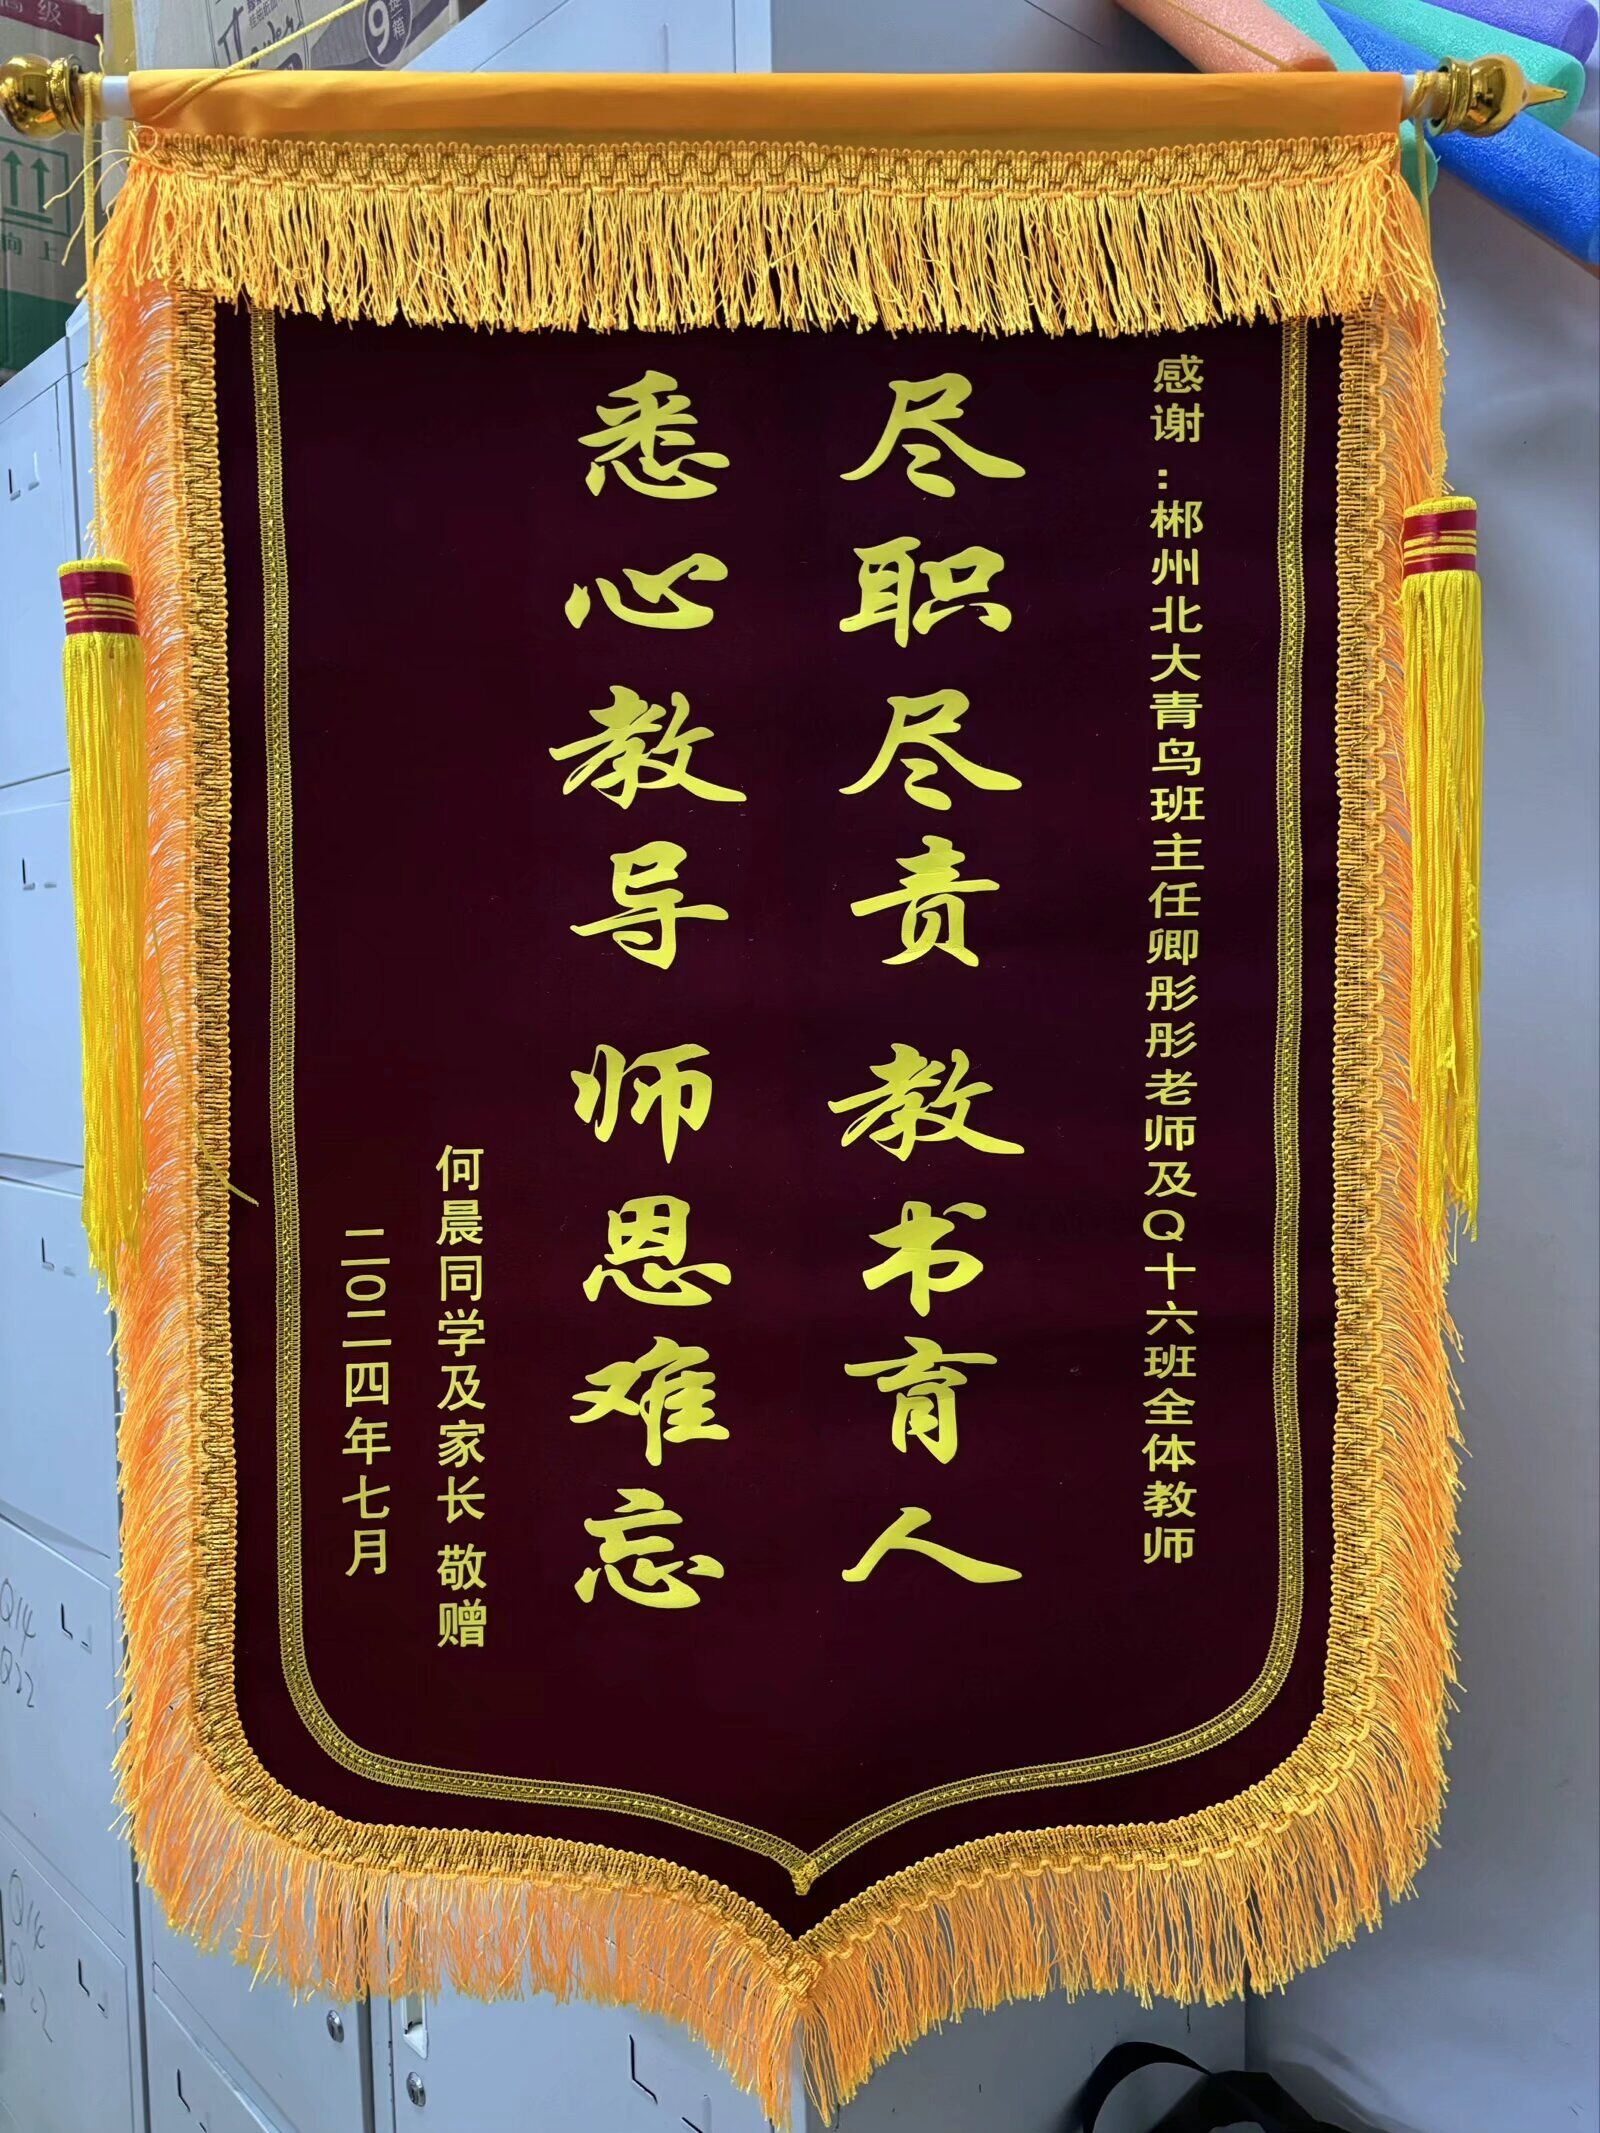 感谢：郴州北大青鸟班主任卿彤彤老师及Q十六班全体教师
尽职尽责 教书育人
悉心教导 师恩难忘
何晨同学及家长 敬赠
二〇二四年七月
向上
9提/箱
Q14
Q22
Q14